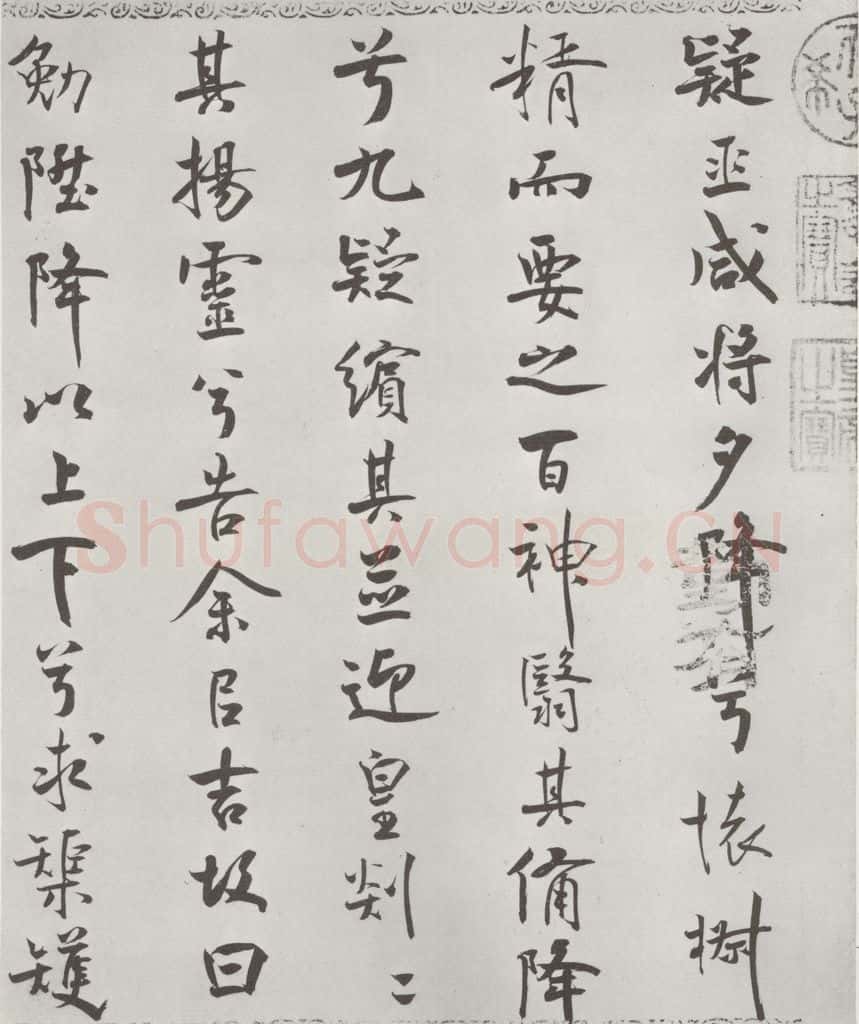 疑巫咸将夕降兮懐椒
精而要之百神翳其備降
兮九疑繽其並迎皇剡二
其揚靈兮告余㠯吉故曰
勉陞降以上下兮求榘矱
Shufawang.CN